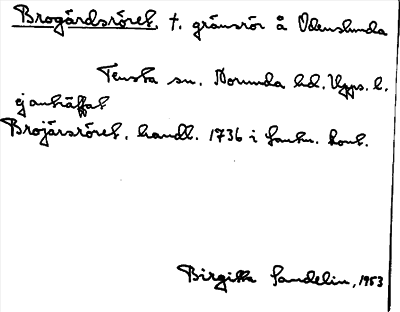 Brogårdsröret, t. gränsrör å Odenslunda
Tensta sn. Norunda hd. Upps. l.
ej anträffat
Brojärsröret. handl. 1736 i lantm. kont.
Birgitta Sandelin, 1953